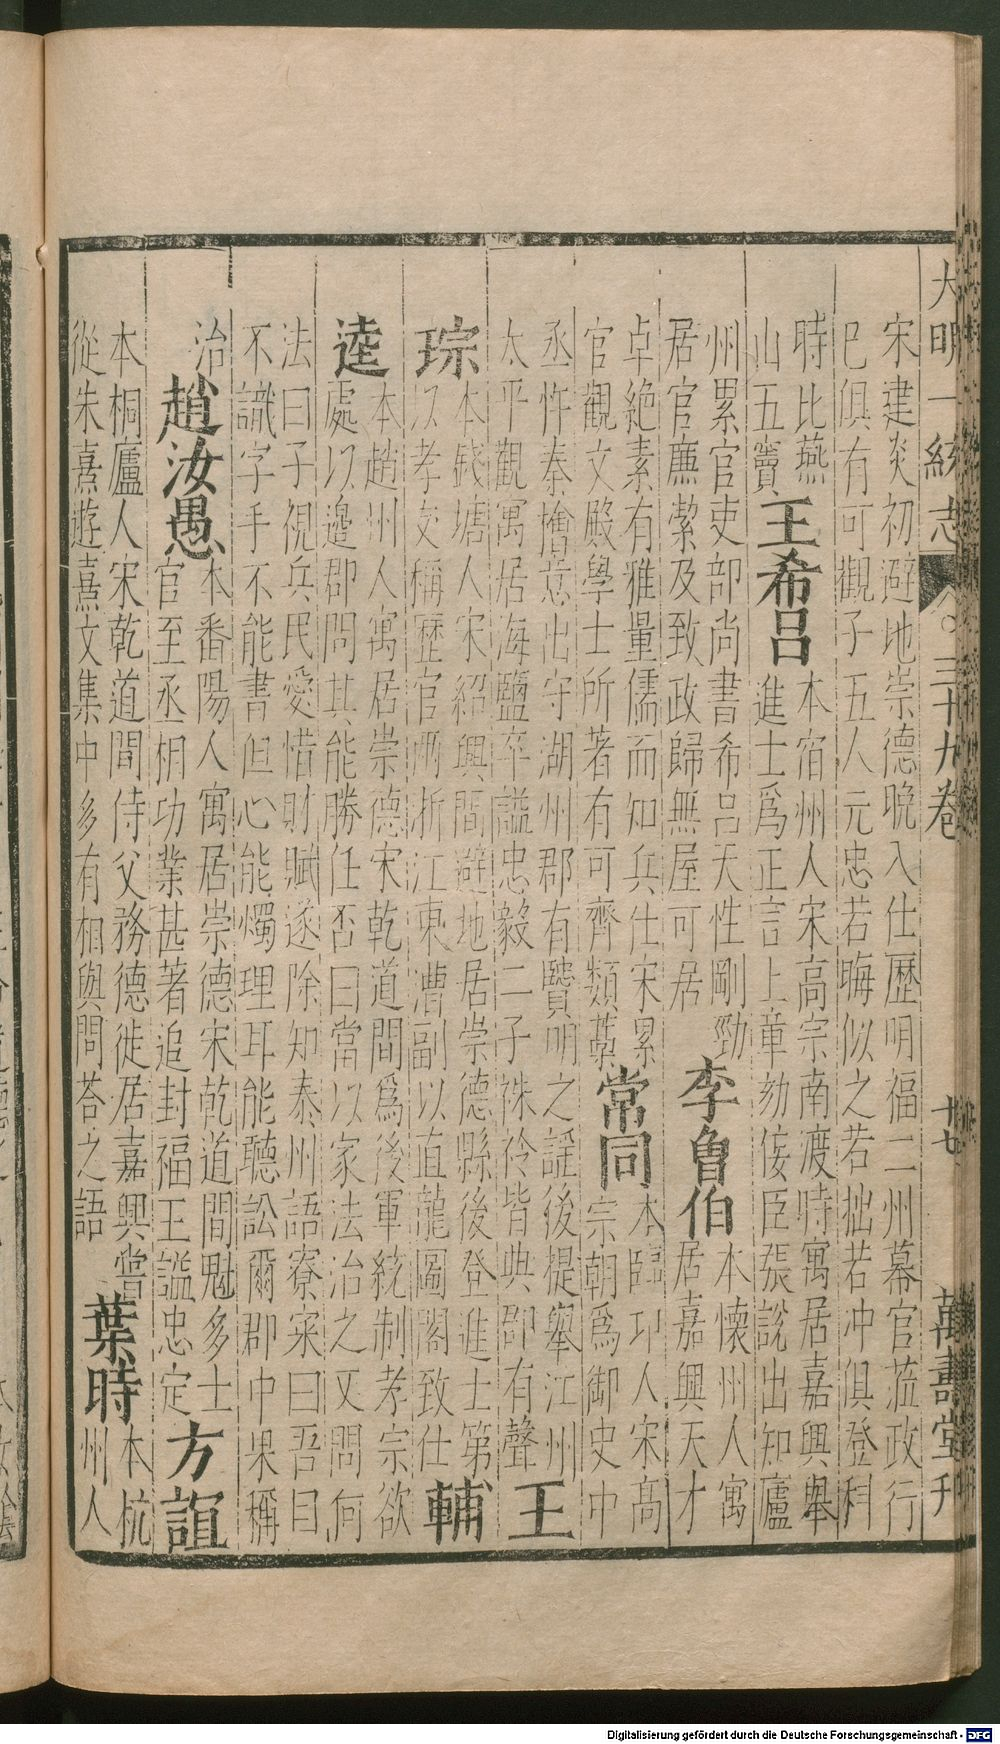 大明一統志 三十九卷 廿七 萬壽堂刋
宋建炎初避地崇德晚入仕歷明福二州幕官蒞政行
已俱有可觀子五人元忠若晦似之若拙若冲俱登科
時比燕
山五竇
王希呂
本宿州人宋高宗南渡時寓居嘉興舉
進士爲正言上章劾侫臣張說出知廬
州累官吏部尚書希呂天性剛勁
居官廉潔及致政歸無屋可居
李魯伯
本懷州人寓
居嘉興天才
卓絕素有雅量儒而知兵仕宋累
官觀文殿學士所著有可齊類藁
常同
本臨卭人宋高
宗朝爲御史中
丞忤秦檜意出守湖州郡有贒明之謡後提舉江州
太平觀寓居海鹽卒謚忠毅二子祩袊皆典郡有聲
王
琮
本錢塘人宋紹興間避地居崇德縣後登進士第
以孝友稱歷官兩折江東漕副以直龍圖閣致仕
輔
逵
本趙州人寓居崇德宋乾道間爲後軍統制孝宗欲
處以邊郡問其能勝任否曰當以家法治之又問何
法曰子視兵民愛惜財賦遂除知泰州語寮寀曰吾目
不識字手不能書但心能燭理耳能聽訟爾郡中果稱
治
趙汝愚
本番陽人寓居崇德宋乾道間魁多士
官至丞相功業甚著追封福王謚忠定
方誼
本桐廬人宋乾道間侍父務德徙居嘉興嘗
從朱熹遊熹文集中多有相與問荅之語
葉時
本杭
州人
Digitalisierung gefördert durch die Deutsche Forschungsgemeinschaft - DFG